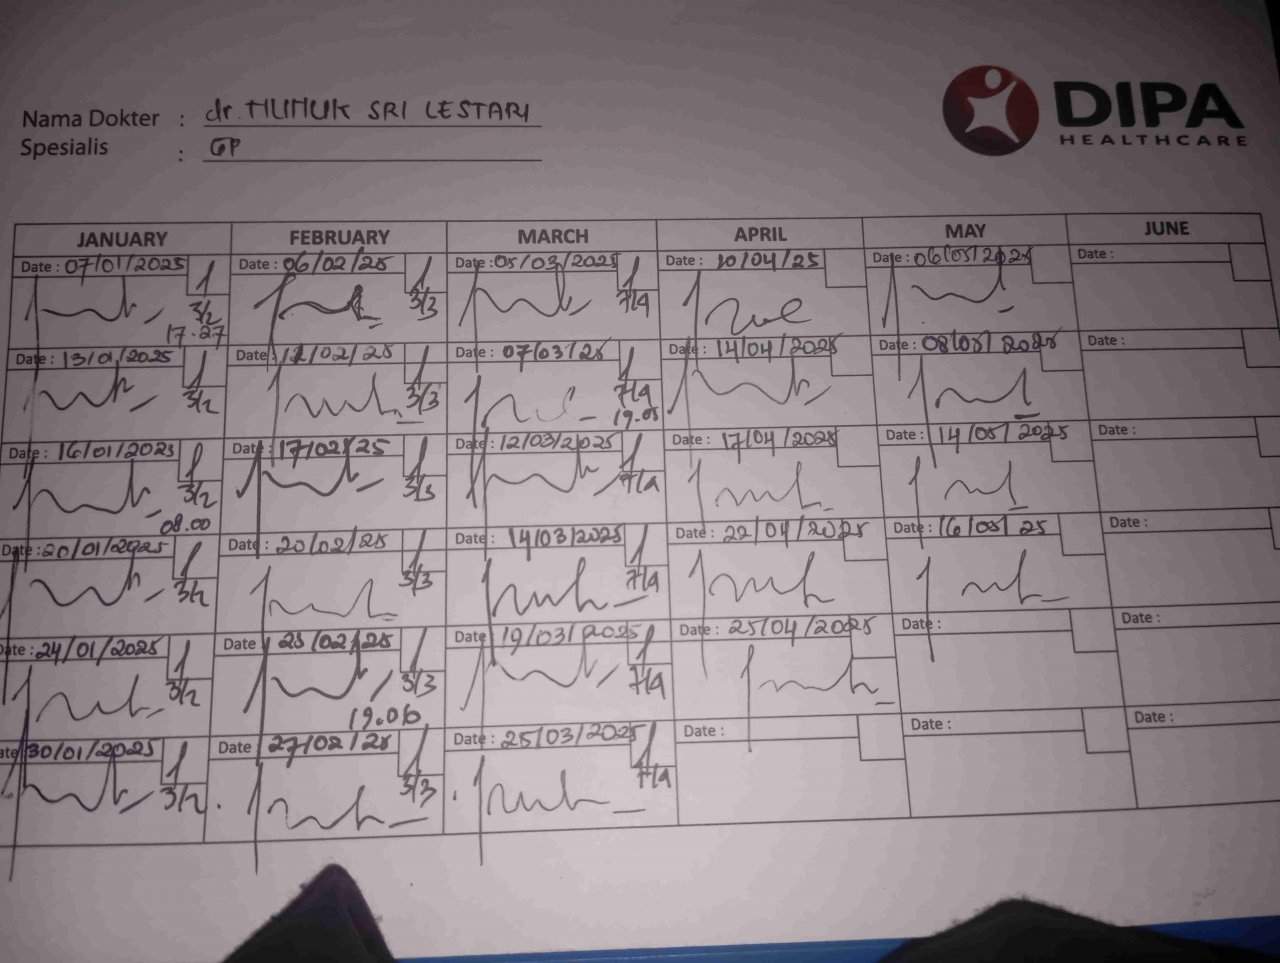 Nama Dokter : dr. MUMUK SRI LESTARI
Spesialis : GP
DIPA
HEALTHCARE
JANUARY FEBRUARY MARCH APRIL MAY JUNE
Date : 07/01/2025 Date : 06/02/25 Date : 05/03/2025 Date : 10/04/25 Date : 06/05/2025 Date :
3/2 3/3 7/4
17.27
Date : 13/01/2025 Date : 12/02/25 Date : 07/03/25 Date : 14/04/2025 Date : 08/05/2025 Date :
3/2 3/3 7/4
19.05
Date : 16/01/2025 Date : 17/02/25 Date : 12/03/2025 Date : 17/04/2025 Date : 14/05/2025 Date :
3/2 3/3 7/4
08.00
Date : 20/01/2025 Date : 20/02/25 Date : 14/03/2025 Date : 22/04/2025 Date : 16/05/25 Date :
3/2 3/3 7/4
Date : 24/01/2025 Date : 25/02/25 Date : 19/03/2025 Date : 25/04/2025 Date : Date :
3/2 3/3 7/4
19.06
Date 30/01/2025 Date : 27/02/25 Date : 25/03/2025 Date : Date : Date :
3/2 3/3 7/4